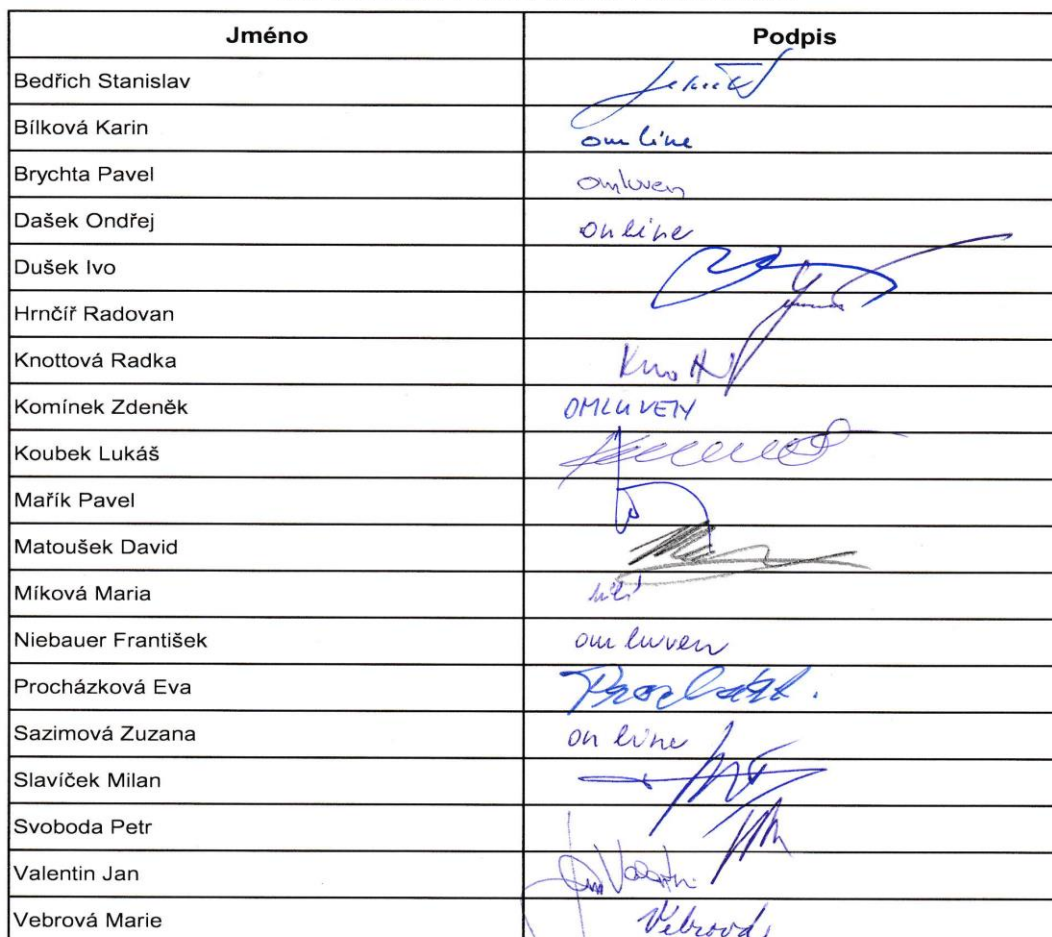 Jméno Podpis
Bedřich Stanislav
Bílková Karin on line
Brychta Pavel omluven
Dašek Ondřej online
Dušek Ivo
Hrnčíř Radovan
Knottová Radka Knott
Komínek Zdeněk OMLUVENÝ
Koubek Lukáš
Mařík Pavel
Matoušek David
Míková Maria
Niebauer František omluven
Procházková Eva
Sazimová Zuzana on line
Slavíček Milan
Svoboda Petr
Valentin Jan Jan Valentin
Vebrová Marie Vebrová